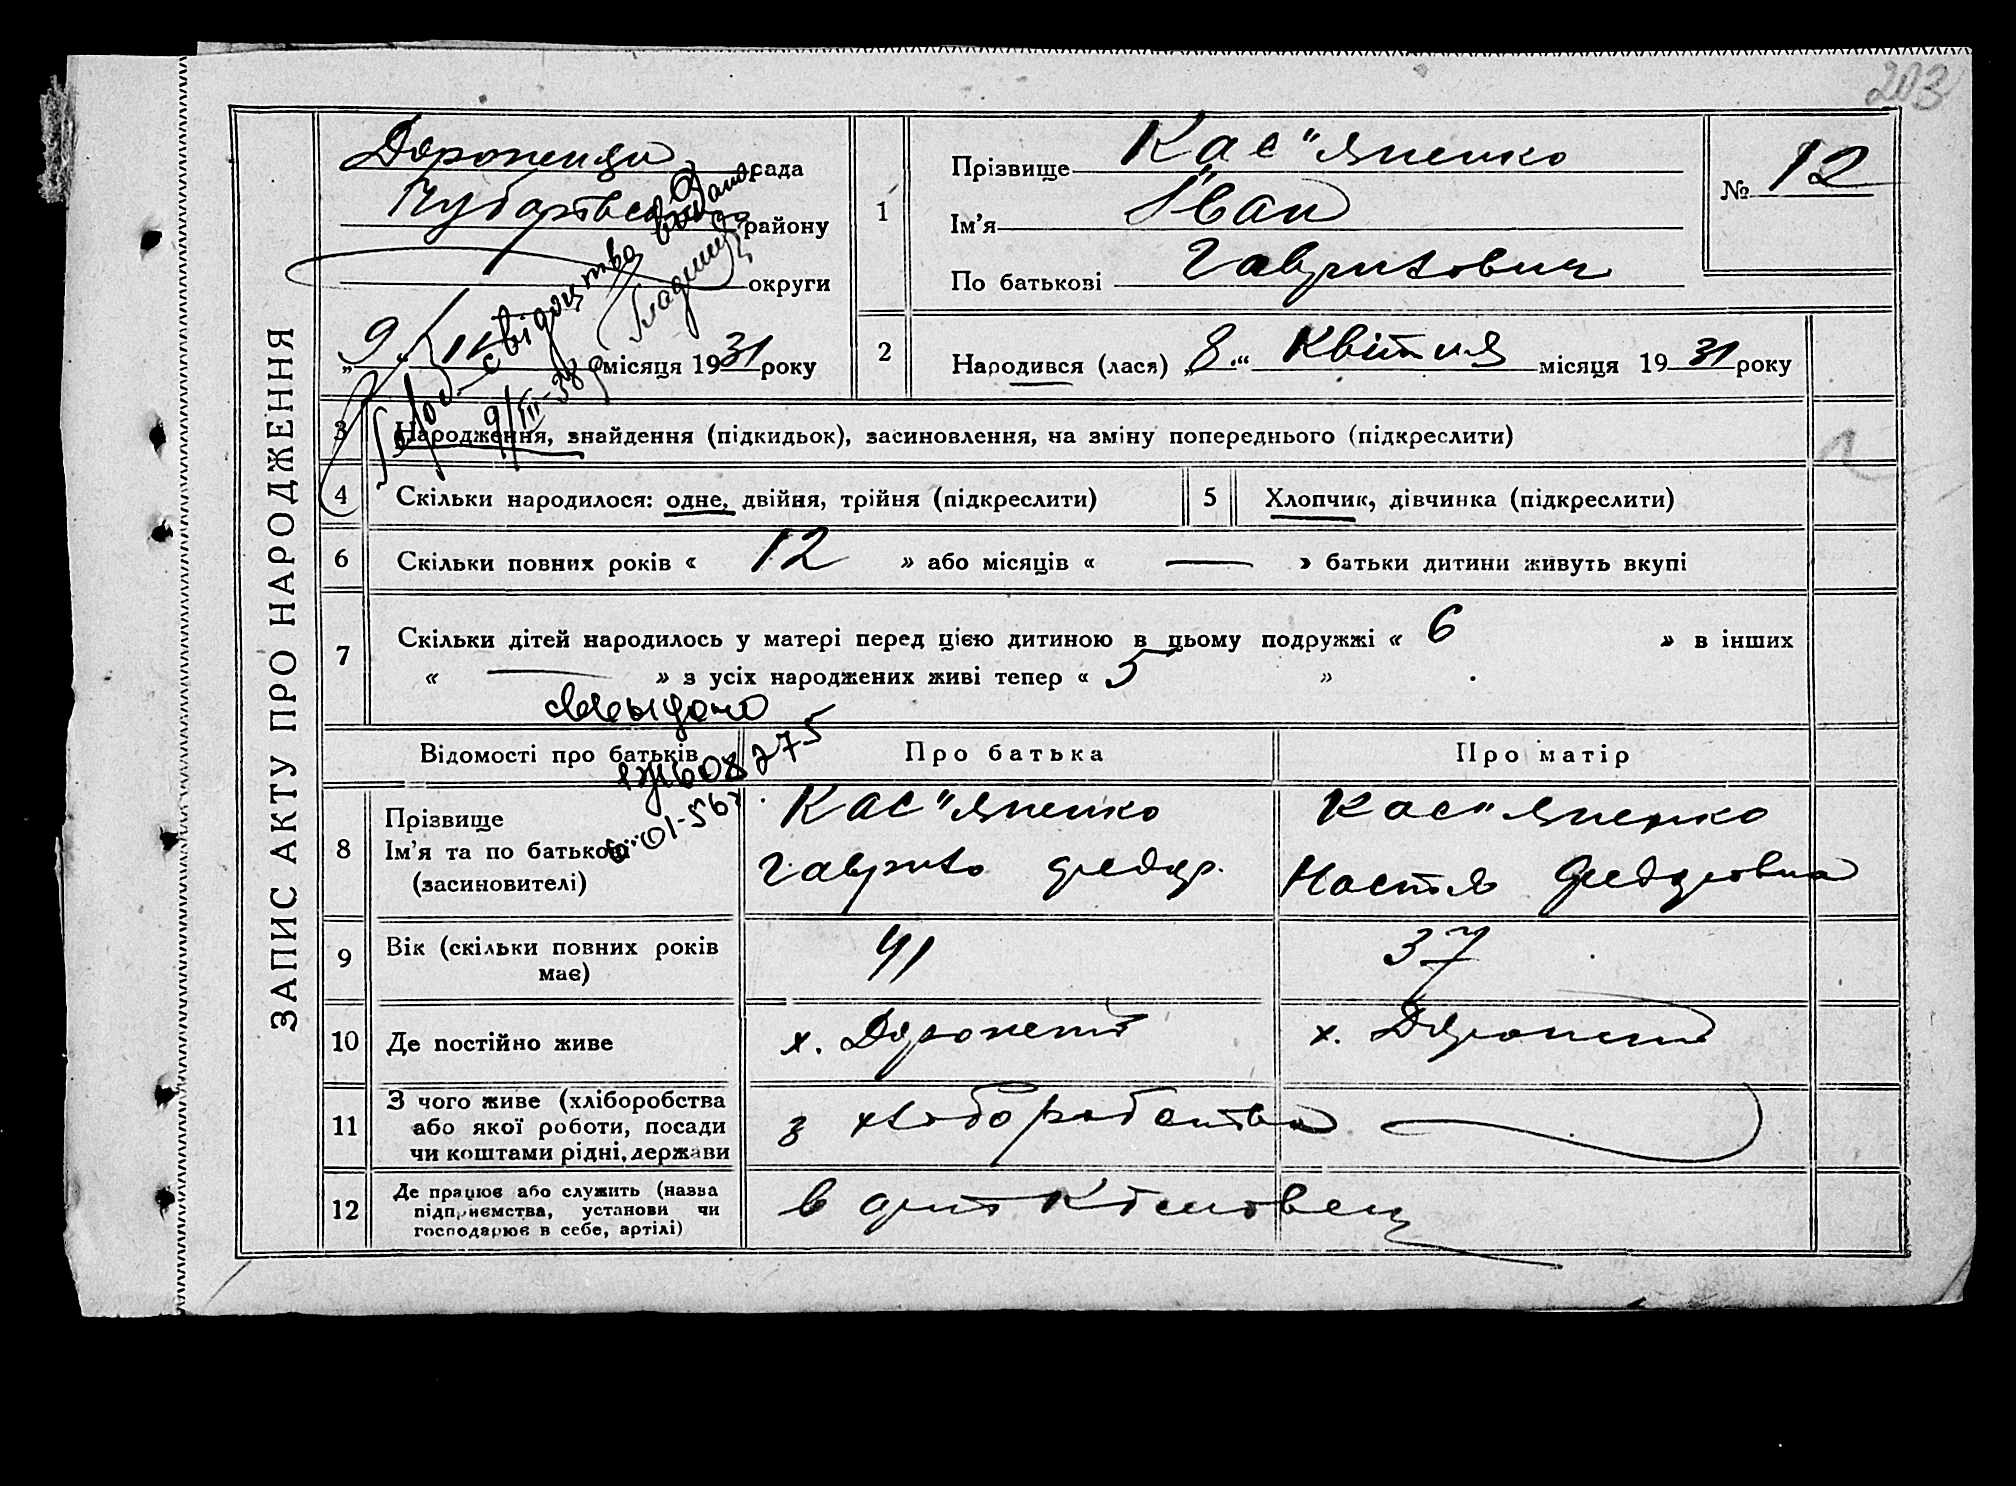 203
ЗАПИС АКТУ ПРО НАРОДЖЕННЯ
рада
району
округи
„9 IV місяця 1931 року
1
Прізвище Кас"яненко
Ім'я Іван
По батькові Гаврилович
№ 12
2
Народився (лася) „8“ Квітня місяця 1931 року
свідоцтво видано
9/III-38
3
Народження, знайдення (підкидьок), засиновлення, на зміну попереднього (підкреслити)
4
Скільки народилося: одне, двійня, трійня (підкреслити)
5
Хлопчик, дівчинка (підкреслити)
6
Скільки повних років « 12 » або місяців « — » батьки дитини живуть вкупі
7
Скільки дітей народилось у матері перед цією дитиною в цьому подружжі « 6 » в інших
« — » з усіх народжених живі тепер « 5 » .
Відомості про батьків
Про батька
Про матір
8
Прізвище
Ім'я та по батькові
(засиновителі)
Кас"яненко
Гаврило Федор.
Кас"яненко
Настя Федоровна
9
Вік (скільки повних років
має)
41
37
10
Де постійно живе
х.
х.
11
З чого живе (хліборобства
або якої роботи, посади
чи коштами рідні, держави
з хлеборобства
12
Де працює або служить (назва
підприємства, установи чи
господарює в себе, артілі)
в